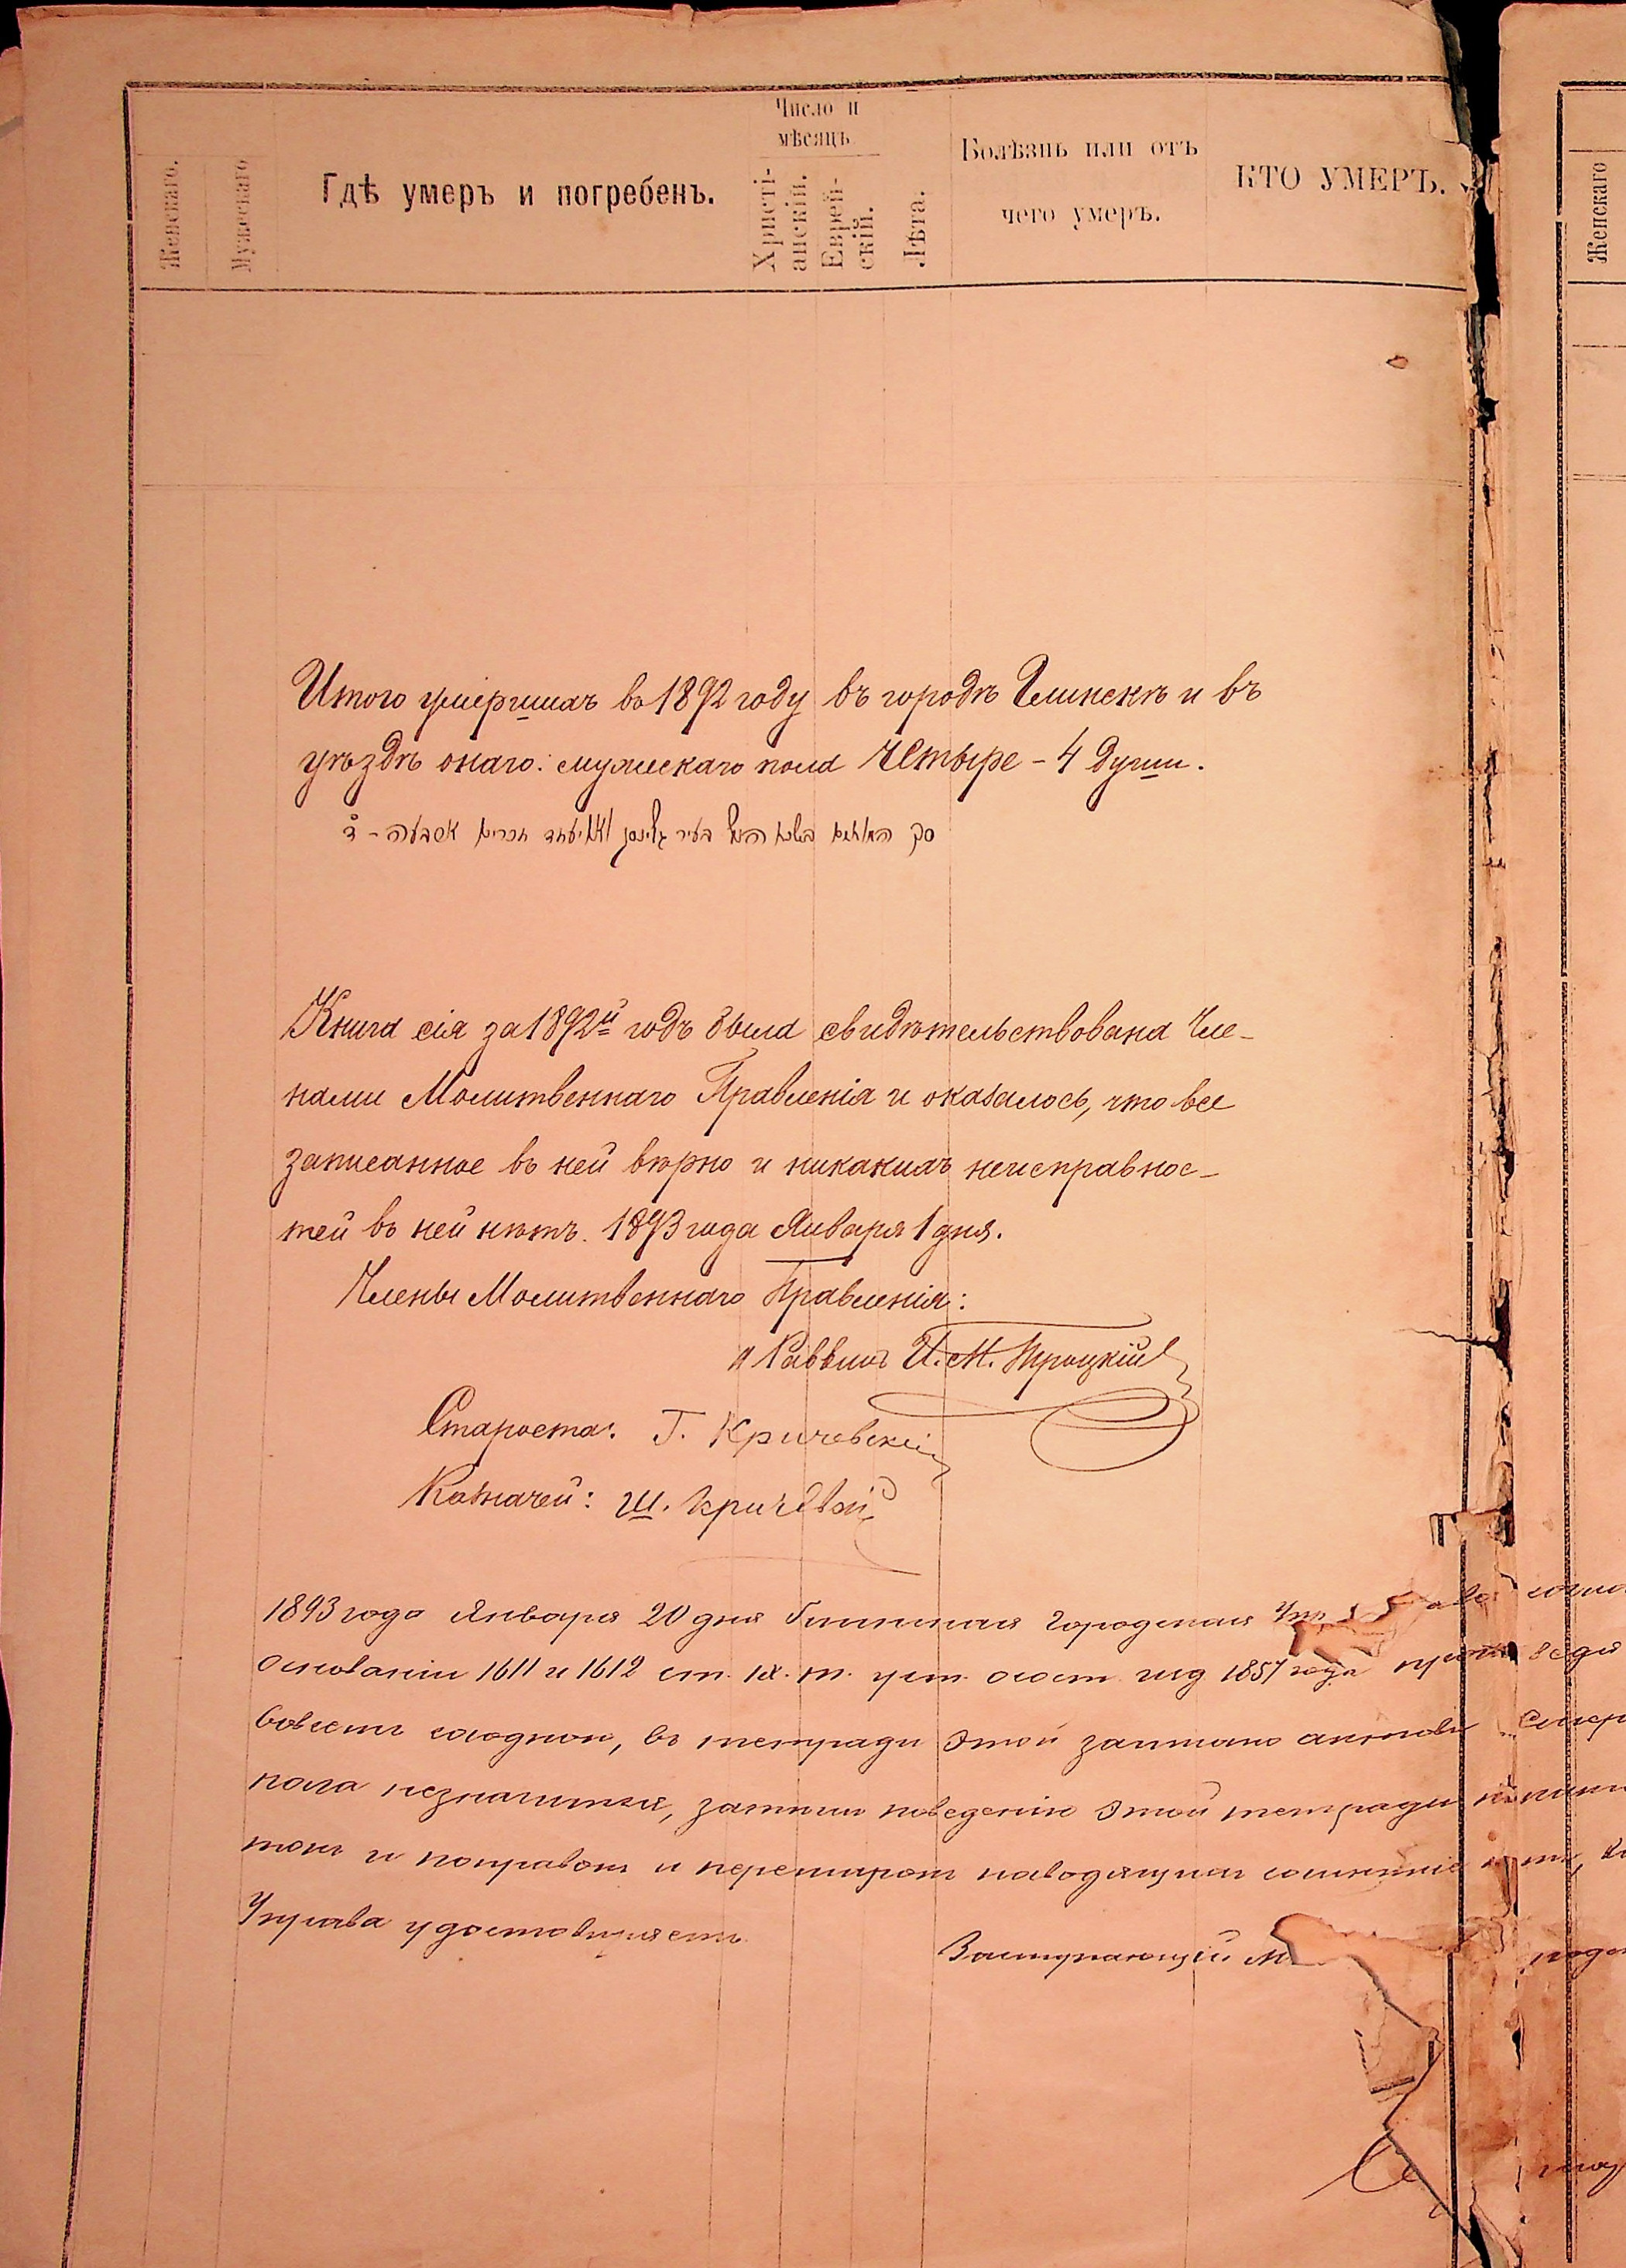 Число и
мѣсяцъ
Женскаго.
Мужескаго
Гдѣ умеръ и погребенъ.
Христі-
анскій.
Еврей-
скій.
Лѣта.
Болѣзнь или отъ
чего умеръ.
КТО УМЕРЪ.
Женскаго
Итого умершихъ въ 1892 году въ городѣ Глинскѣ и въ
уѣздѣ онаго: мужескаго пола Четыре - 4 души.
סך המתים בשנת בעיר גלינסק זכרים ארבעה - ד
Книга сія за 1892й годъ была свидѣтельствована Чле-
нами Молитвеннаго Правленія и оказалось, что все
записанное въ ней вѣрно и никакихъ неисправнос-
тей въ ней нѣтъ. 1893 года Января 1 дня.
Члены Молитвеннаго Правленія:
Раввинъ И. М. Троцкій
Староста: Г. Кричевскій
Казначей: Ш. Кричевскій
1893 года Января 20 дня Глинская Городская
основаніи 1611 и 1612 ст. IX. т. изд. 1857 года
въ тетради этой записано актовъ
пола незначится, затѣмъ поведенію этой тетради
и поправокъ и наводящихъ
Управа удостовѣряетъ
Заступающій